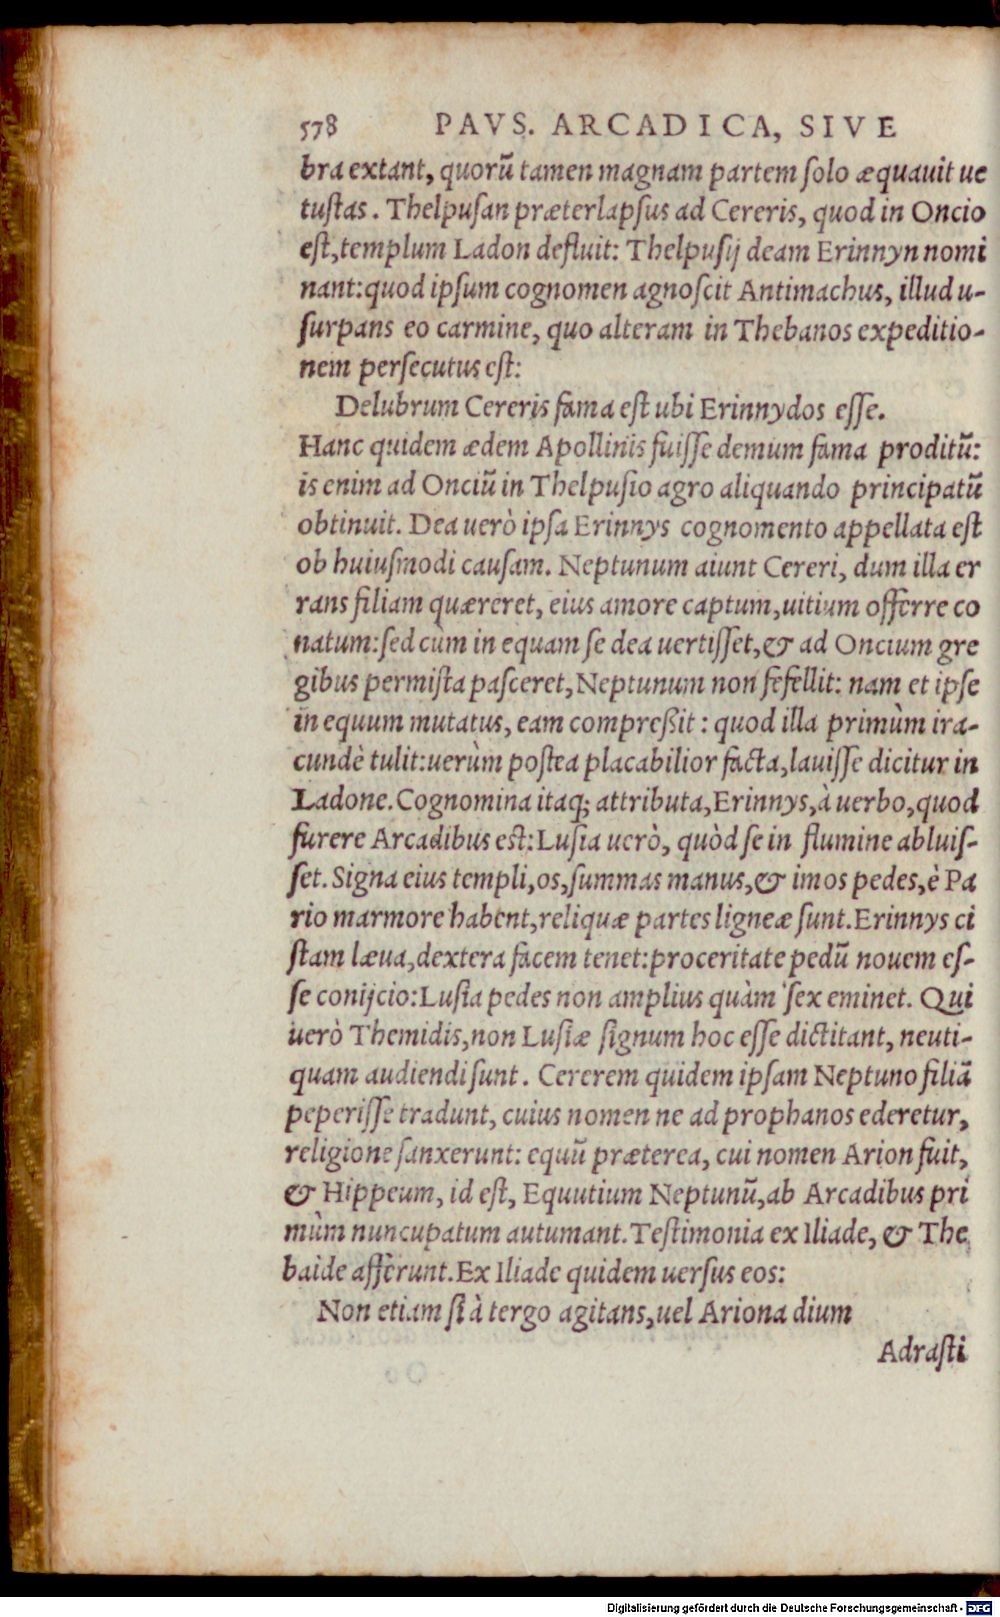 578 PAVS. ARCADICA, SIVE
bra extant, quorũ tamen magnam partem ſolo æquauit ue
tuſtas. Thelpuſan præterlapſus ad Cereris, quod in Oncio
eſt, templum Ladon defluit: Thelpuſij deam Erinnyn nomi
nant: quod ipſum cognomen agnoſcit Antimachus, illud u-
ſurpans eo carmine, quo alteram in Thebanos expeditio-
nem perſecutus eſt:
Delubrum Cereris fama eſt ubi Erinnydos eſſe.
Hanc quidem ædem Apollinis fuiſſe demum fama proditũ:
is enim ad Onciũ in Thelpuſio agro aliquando principatũ
obtinuit. Dea uerò ipſa Erinnys cognomento appellata eſt
ob huiuſmodi cauſam. Neptunum aiunt Cereri, dum illa er
rans filiam quæreret, eius amore captum, uitium offerre co
natum: ſed cùm in equam ſe dea uertiſſet, & ad Oncium gre
gibus permiſta paſceret, Neptunum non fefellit: nam et ipſe
in equum mutatus, eam compreßit: quod illa primùm ira-
cundè tulit: uerùm poſtea placabilior facta, lauiſſe dicitur in
Ladone. Cognomina itaq; attributa, Erinnys, à uerbo, quod
furere Arcadibus est: Luſia uerò, quòd ſe in flumine abluiſ-
ſet. Signa eius templi, os, ſummas manus, & imos pedes, è Pa
rio marmore habent, reliquæ partes ligneæ ſunt. Erinnys ci
ſtam læua, dextera facem tenet: proceritate pedũ nouem eſ-
ſe conijcio: Luſia pedes non amplius quàm ſex eminet. Qui
uerò Themidis, non Luſiæ ſignum hoc eſſe dictitant, neuti-
quam audiendi ſunt. Cererem quidem ipſam Neptuno filiã
peperiſſe tradunt, cuius nomen ne ad prophanos ederetur,
religione ſanxerunt: equũ præterea, cui nomen Arion fuit,
& Hippeum, id eſt, Equutium Neptunũ, ab Arcadibus pri
mùm nuncupatum autumant. Teſtimonia ex Iliade, & The
baide afferunt. Ex Iliade quidem uerſus eos:
Non etiam ſi à tergo agitans, uel Ariona dium
Adraſti
Digitalisierung gefördert durch die Deutsche Forschungsgemeinschaft - DFG